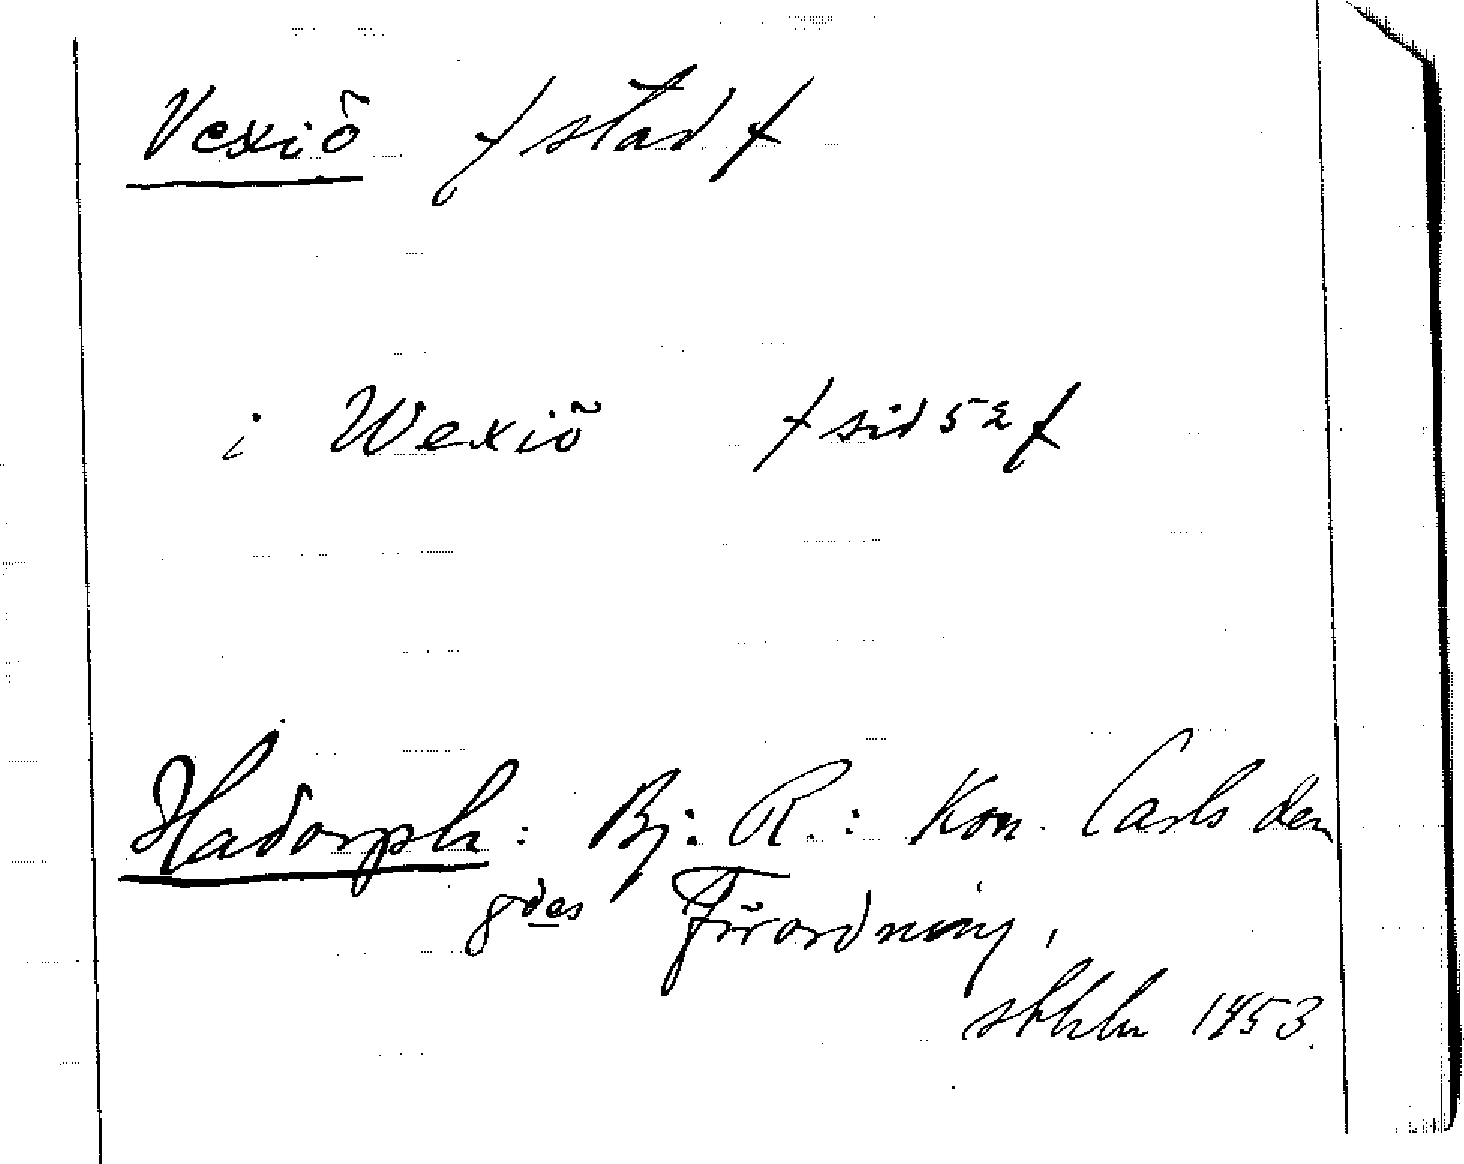 Vexiö / stad /
i Wexiö / sid 52 /
Hadorph: Bj: R.: Kon. Carls den
8des Förordning,
sthlm 1453.